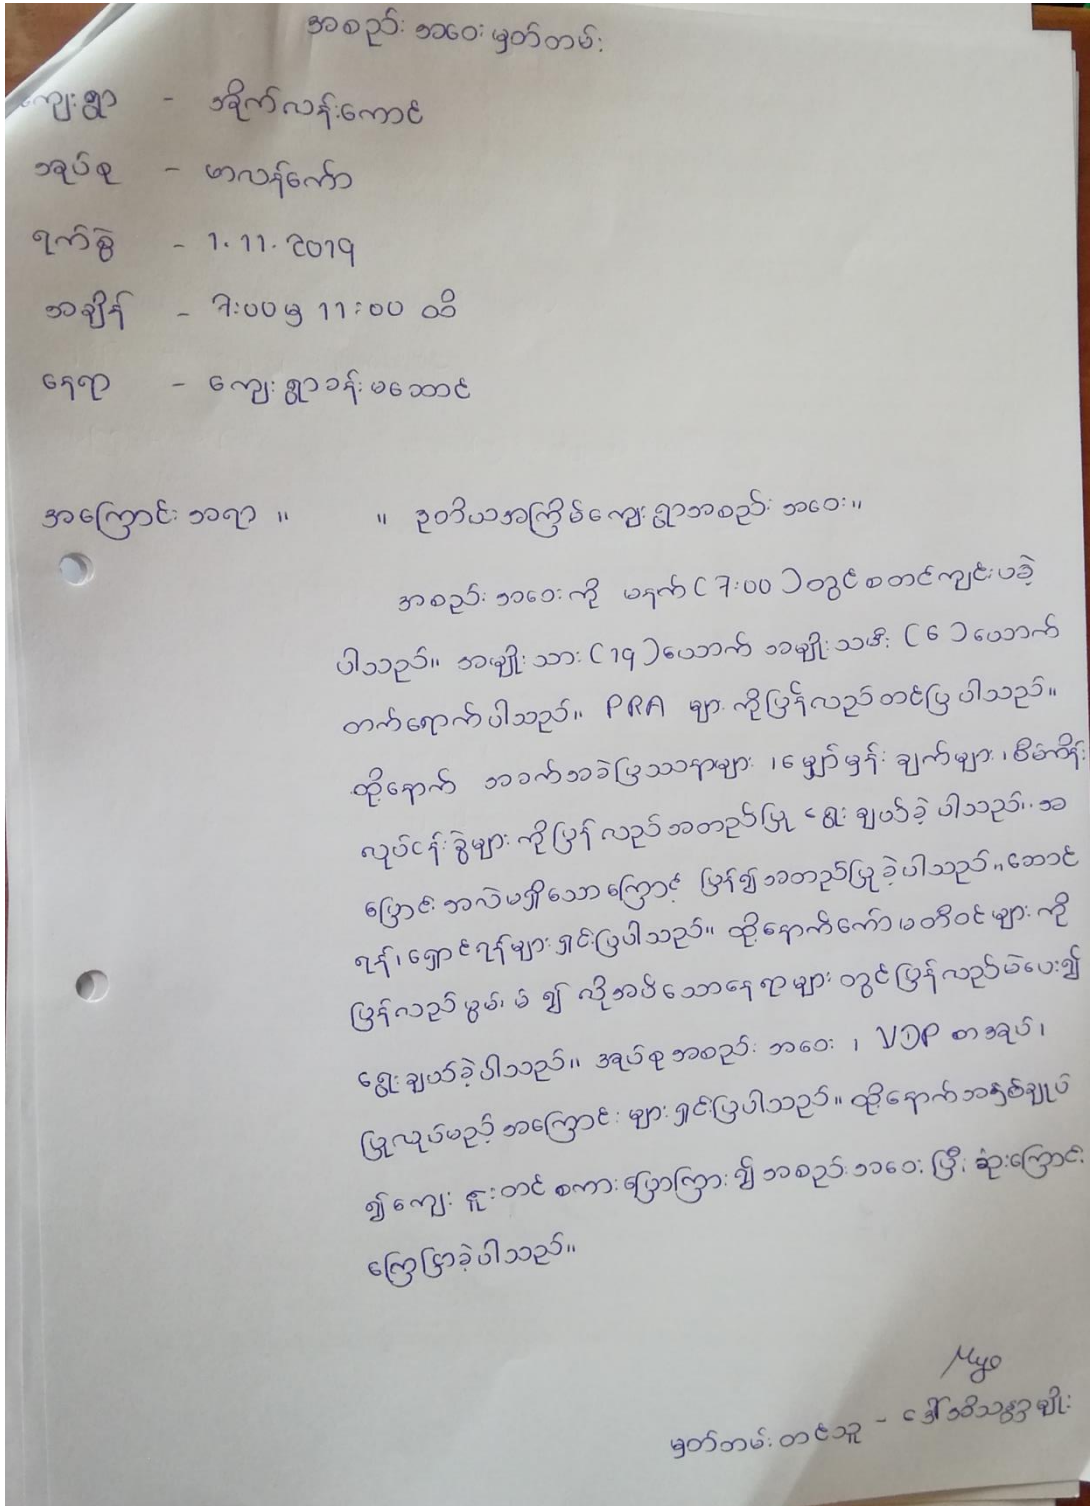 အစည်းအဝေးမှတ်တမ်း
ကျေးရွာ - အိုက်လန်းကောင်
အုပ်စု - ဖာလန်ကော်
ရက်စွဲ - 1.11.2019
အချိန် - 7:00 မှ 11:00 ထိ
နေရာ - ကျေးရွာခန်းမဆောင်
အကြောင်းအရာ ။ ။ ဒုတိယအကြိမ်ကျေးရွာအစည်းအဝေး။
အစည်းအဝေးကို မနက် (7:00) တွင် စတင်ကျင်းပခဲ့
ပါသည်။ အမျိုးသား (19) ယောက် အမျိုးသမီး (6) ယောက်
တက်ရောက်ပါသည်။ PRA များကိုပြန်လည်တင်ပြပါသည်။
ထို့နောက် အခက်အခဲပြဿနာများ ၊ မျှော်မှန်းချက်များ ၊ စီမံကိန်း
လုပ်ငန်းခွဲများကိုပြန်လည်အတည်ပြု ရွေးချယ်ခဲ့ပါသည်။ အ
ပြောင်းအလဲမရှိသောကြောင့် ပြန်၍အတည်ပြုခဲ့ပါသည်။ ဆောင်
ရန်၊ ရှောင်ရန်များ ရှင်းပြပါသည်။ ထို့နောက်ကော်မတီဝင်များကို
ပြန်လည် ၍ လိုအပ်သောနေရာများတွင်ပြန်လည်မဲပေး၍
ရွေးချယ်ခဲ့ပါသည်။ အုပ်စုအစည်းအဝေး ၊ VDP စာအုပ် ၊
ပြုလုပ်မည့်အကြောင်းများရှင်းပြပါသည်။ ထို့နောက်အနှစ်ချုပ်
၍ ကျေးဇူးတင်စကားပြောကြား၍ အစည်းအဝေးပြီးဆုံးကြောင်း
ကြေငြာခဲ့ပါသည်။
Myo
မှတ်တမ်းတင်သူ - ဒေါ်အိသန္တာမျိုး